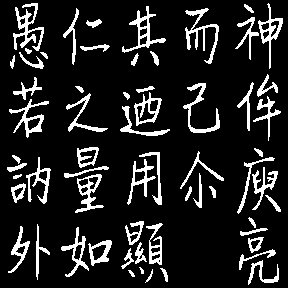 神侔庾亮
而己尒
其迺用顯
仁之量如
愚若訥外